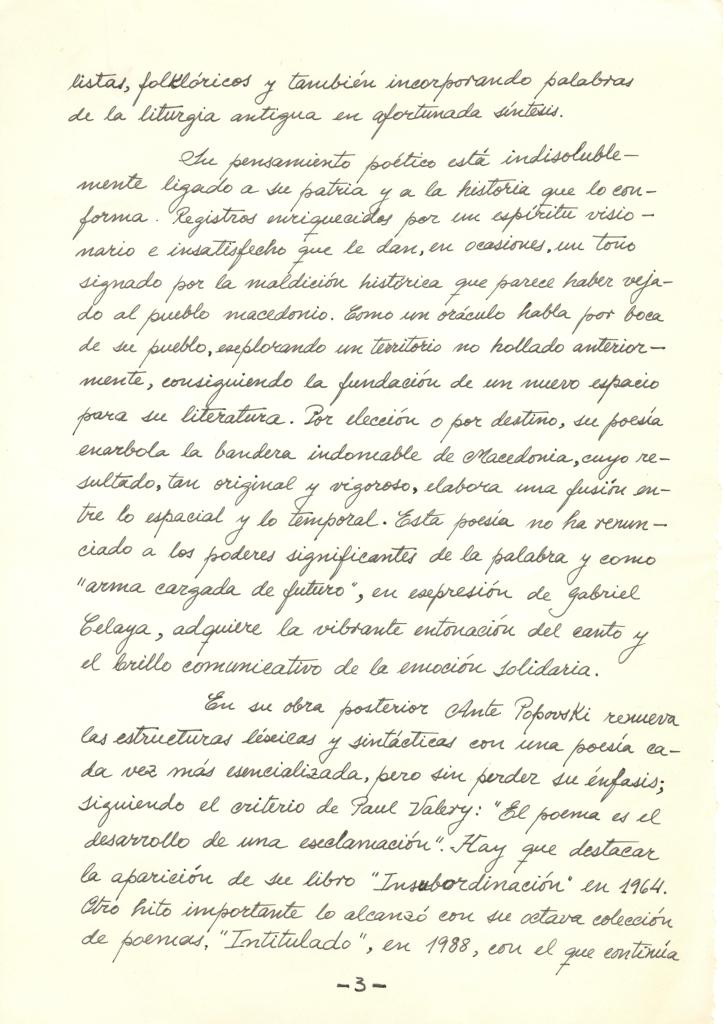 listas, folklóricos y también incorporando palabras
de la liturgia antigua en afortunada síntesis.
Su pensamiento poético está indisoluble-
mente ligado a su patria y a la historia que lo con-
forma. Registros enriquecidos por un espíritu visio-
nario e insatisfecho que le dan, en ocasiones, un tono
signado por la maldición histórica que parece haber veja-
do al pueblo macedonio. Como un oráculo habla por boca
de su pueblo, explorando un territorio no hollado anterior-
mente, consiguiendo la fundación de un nuevo espacio
para su literatura. Por elección o por destino, su poesía
enarbola la bandera indomable de Macedonia, cuyo re-
sultado, tan original y vigoroso, elabora una fusión en-
tre lo espacial y lo temporal. Esta poesía no ha renun-
ciado a los poderes significantes de la palabra y como
"arma cargada de futuro", en expresión de Gabriel
Celaya, adquiere la vibrante entonación del canto y
el brillo comunicativo de la emoción solidaria.
En su obra posterior Ante Popovski renueva
las estructuras léxicas y sintácticas con una poesía ca-
da vez más esencializada, pero sin perder su énfasis;
siguiendo el criterio de Paul Valery: "El poema es el
desarrollo de una exclamación". Hay que destacar
la aparición de su libro "Insubordinación" en 1964.
Otro hito importante lo alcanzó con su octava colección
de poemas, "Intitulado", en 1988, con el que continúa
-3-